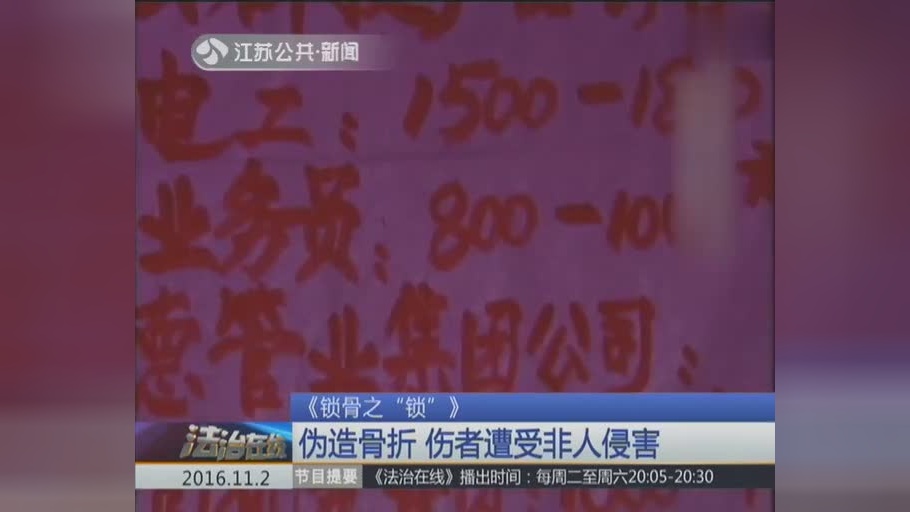 江苏公共·新闻
电工：1500-18
业务员：800-100
惠管业集团公司：
《锁骨之“锁”》
法治在线
伪造骨折 伤者遭受非人侵害
2016.11.2
节目提要
《法治在线》播出时间：每周二至周六20:05-20:30